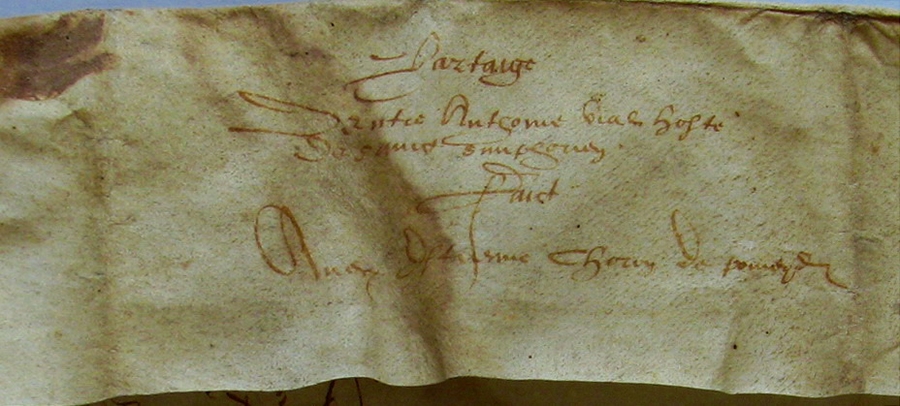 Partaige
Dentre Anthoine Vial hoste
De sainct Simphorien
Faict
Avec Estienne Thorin de pomeys